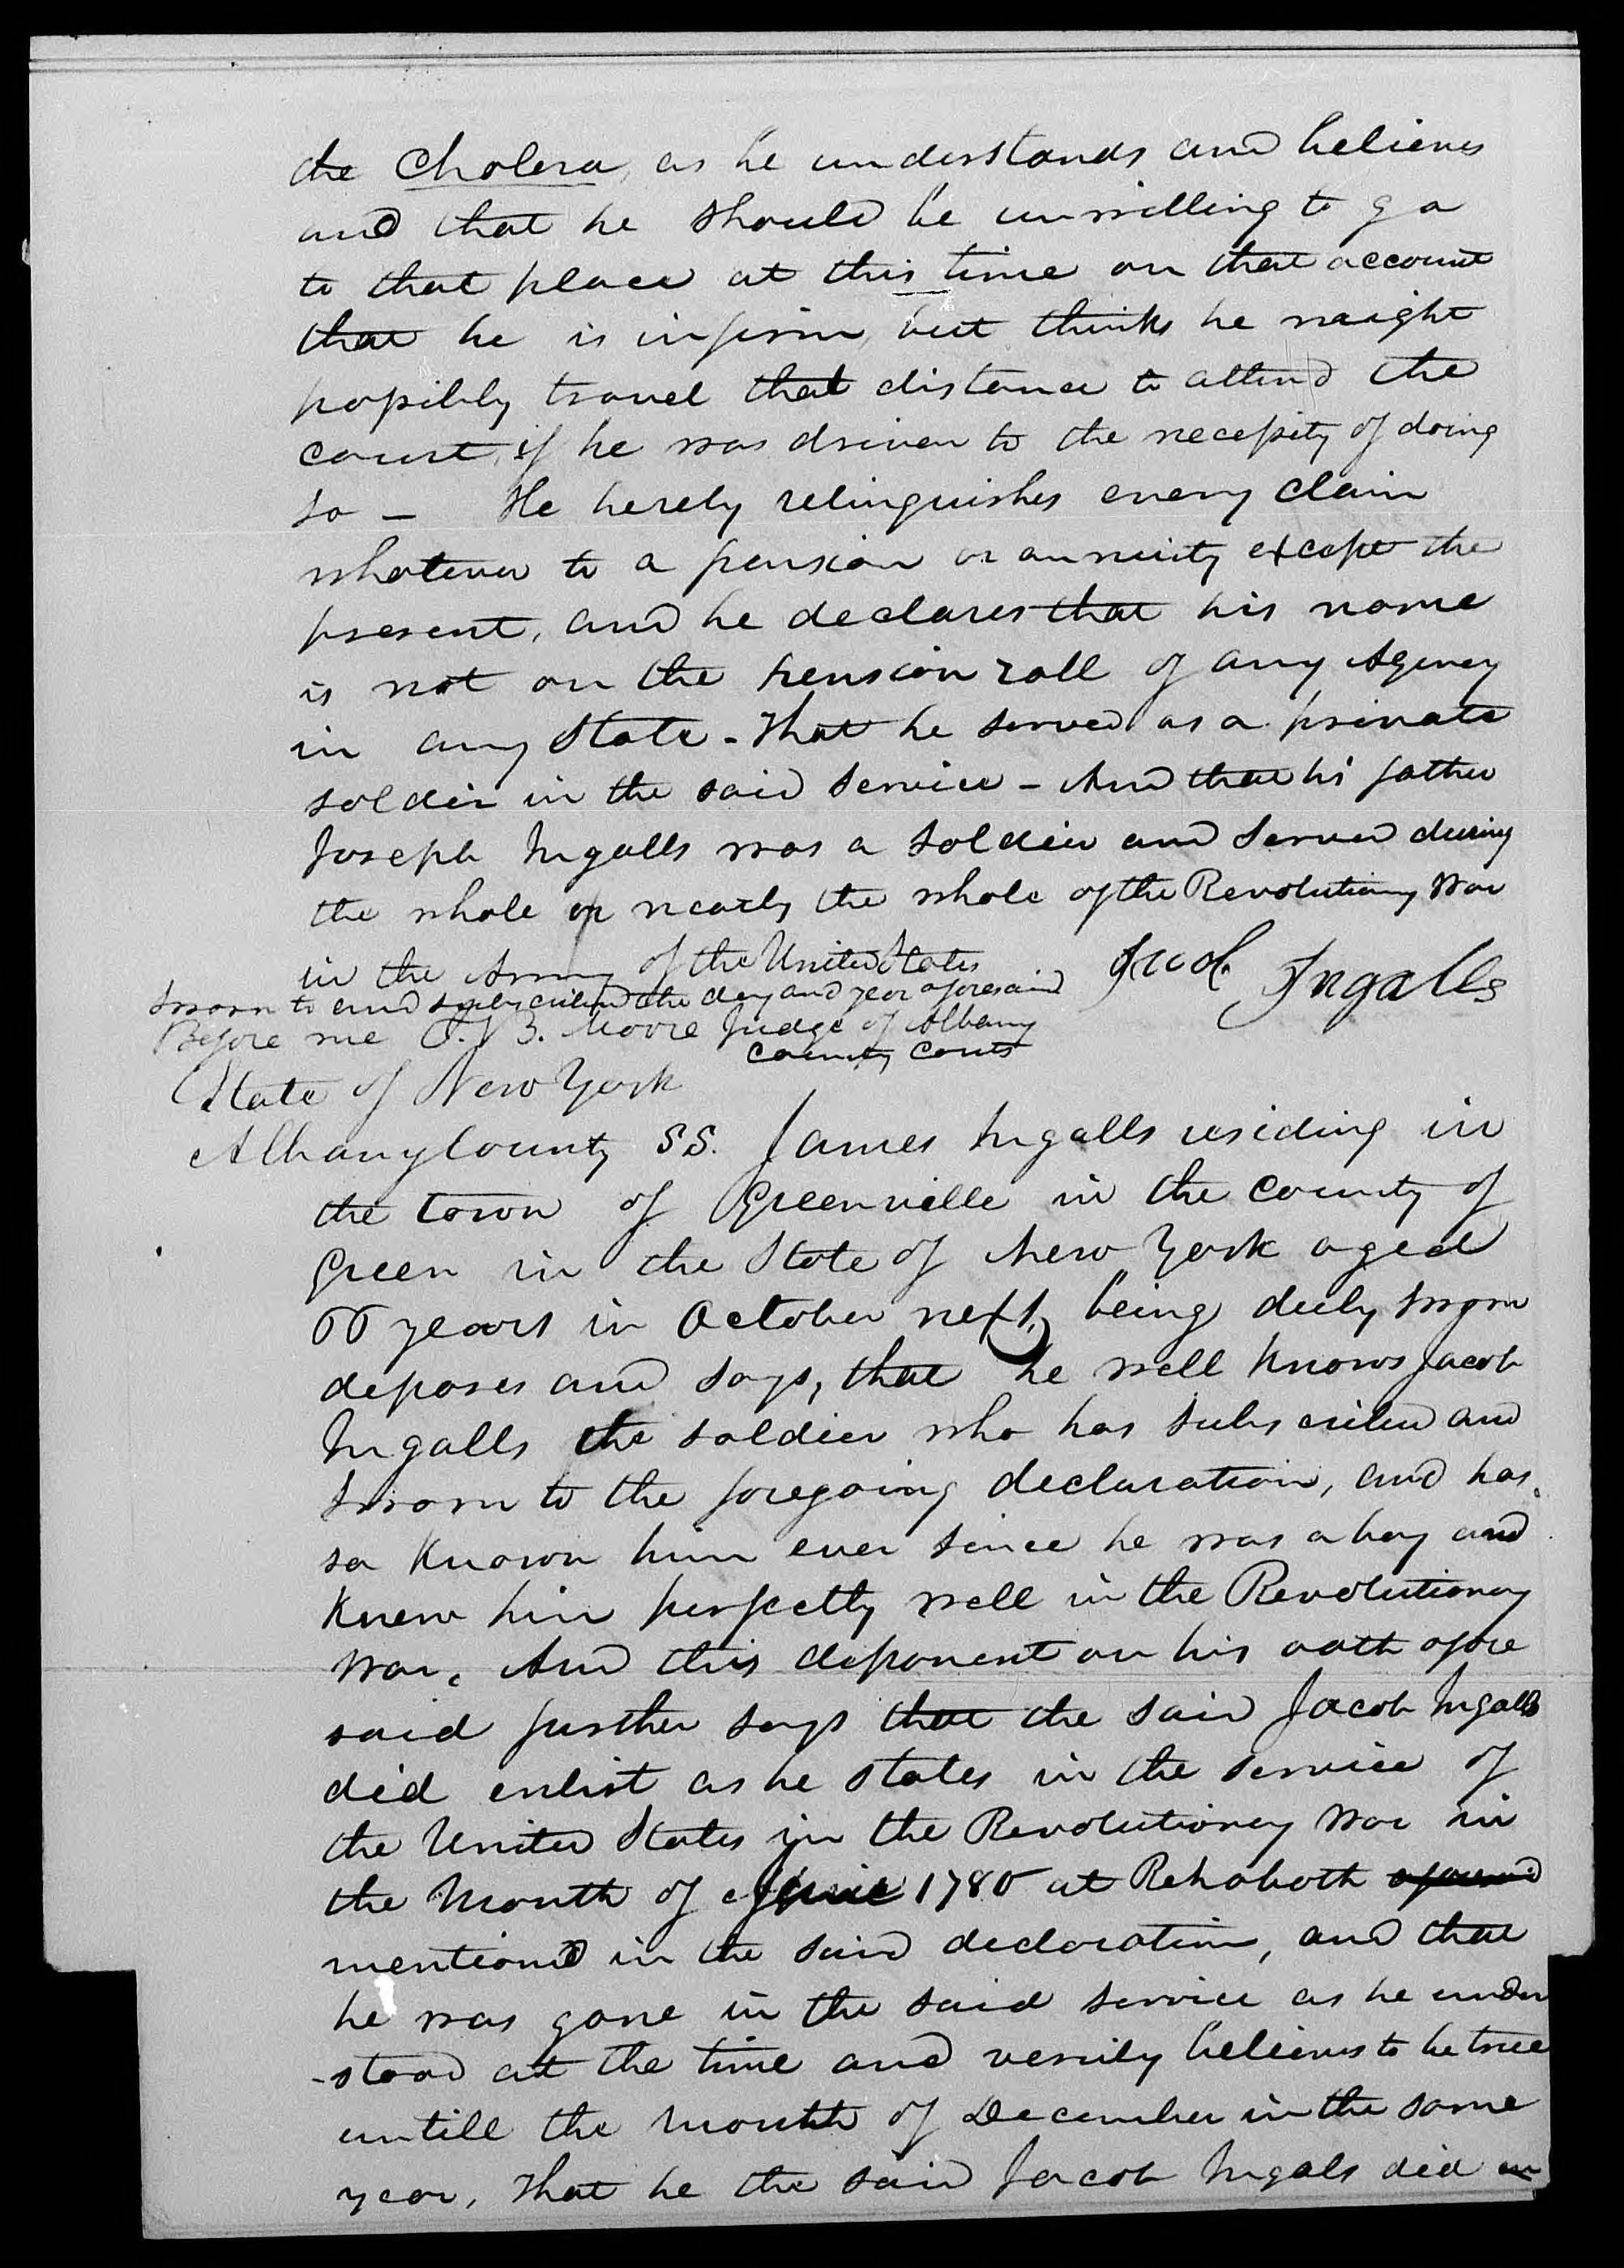 the Cholera, as he understands and believes
and that he should be unwilling to go
to that place at this time on that account
that he is infirm, but thinks he might
possibly travel that distance to attend the
court, if he was driven to the necessity of doing
so - He hereby relinquishes every claim
whatever to a pension or annuity except the
present, and he declares that his name
is not on the pension roll of any Agency
in any State - That he served as a private
soldier in the said service - And that his father
Joseph Ingalls was a soldier and served during
the whole or nearly the whole of the Revolutionary War
in the Army of the United States
Jacob Ingalls
Sworn to and subscribed the day and year aforesaid
Before me J. B. Moore Judge of Albany
County Courts
State of New York
Albany County SS. James Ingalls residing in
the town of Greenville in the county of
Green in the State of New York aged
66 years in October next, being duly sworn
deposes and says, that he well knows Jacob
Ingalls the soldier who has subscribed and
sworn to the foregoing declaration, and has
so known him ever since he was a boy and
knew him perfectly well in the Revolutionary
War. And this deponent on his oath afore
said further says that the said Jacob Ingalls
did enlist as he states in the service of
the United States in the Revolutionary War in
the Month of June 1780 at Rehoboth aforesaid
mentioned in the said declaration, and that
he was gone in the said service as he under
-stood at the time and verily believes to be true
untill the month of December in the same
year, That he the said Jacob Ingals did